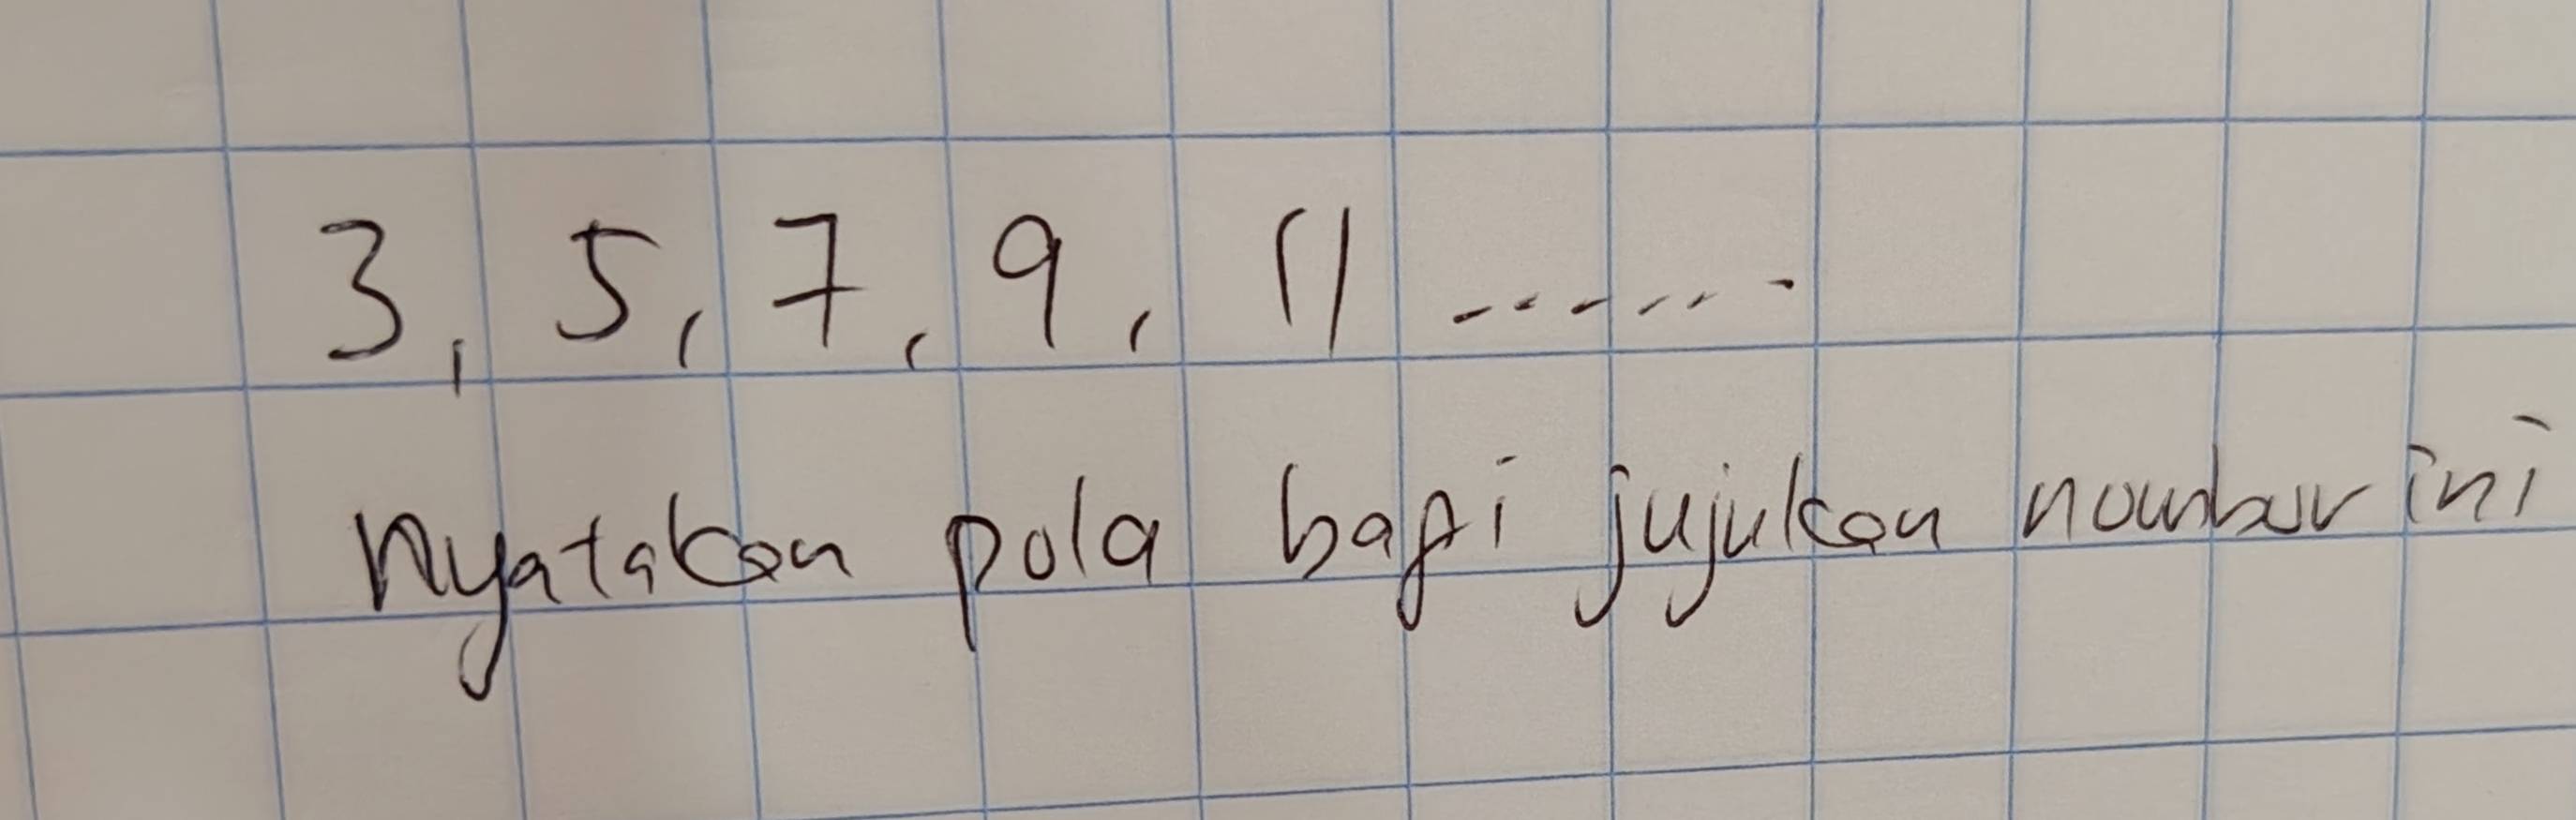 3, 5, 7, 9, 11 .......
Nyatakan pola bagi jujukan nombor ini